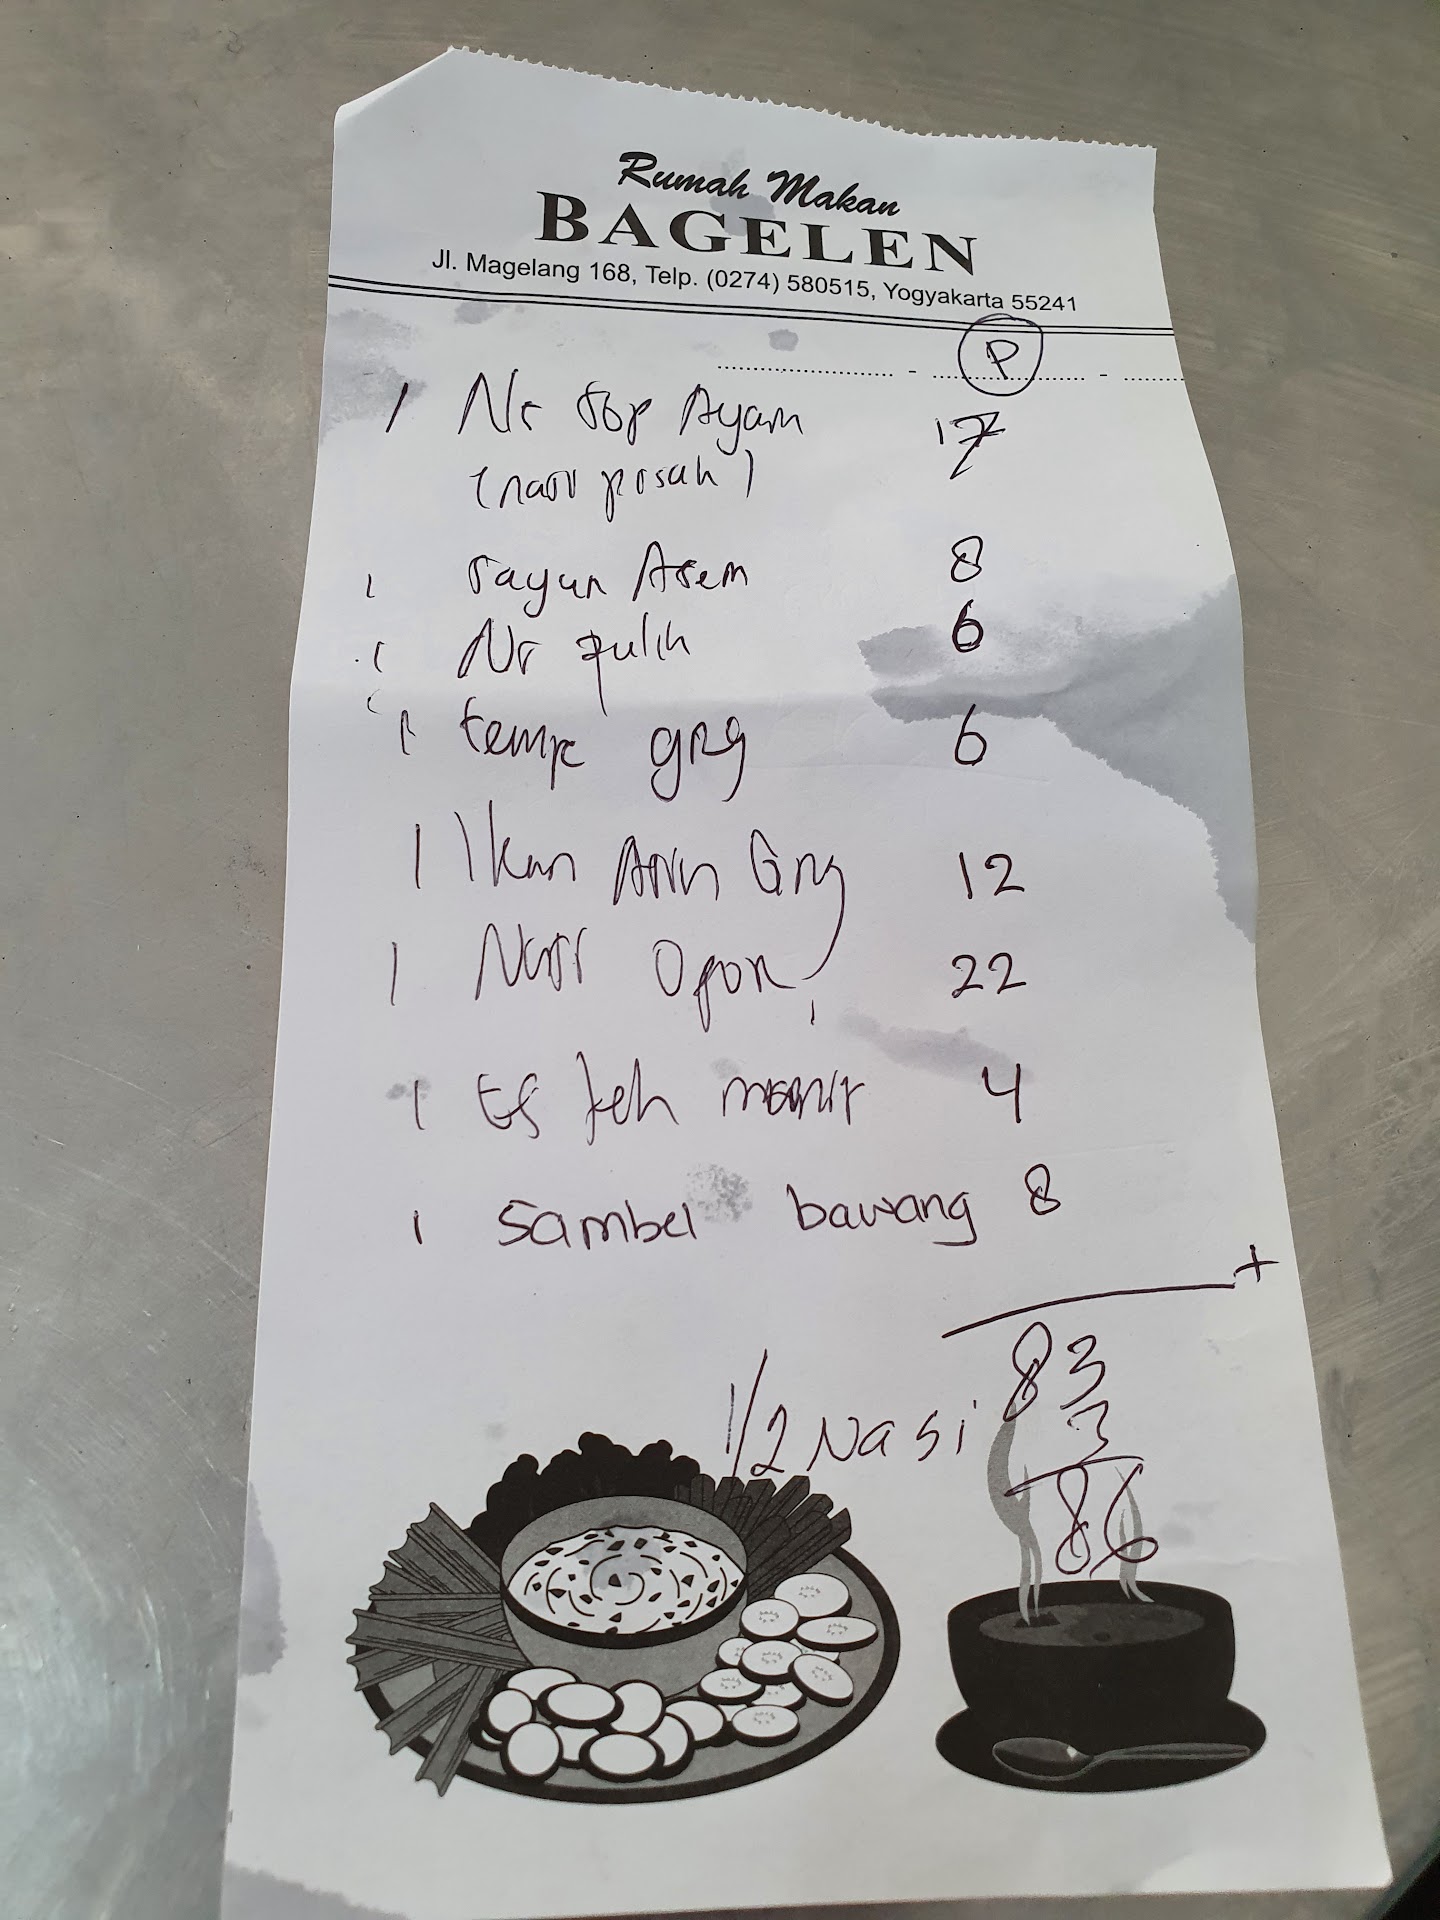 Rumah Makan
BAGELEN
Jl. Magelang 168, Telp. (0274) 580515, Yogyakarta 55241
P
1 Ns Sop Ayam 17
(nasi pisah)
1 Sayur Asem 8
1 Ns putih 6
1 tempe grg 6
1 Ikan Asin Grg 12
1 Nasi Opor 22
1 Es teh manis 4
1 Sambel bawang 8
+
83
1/2 Nasi 3
86